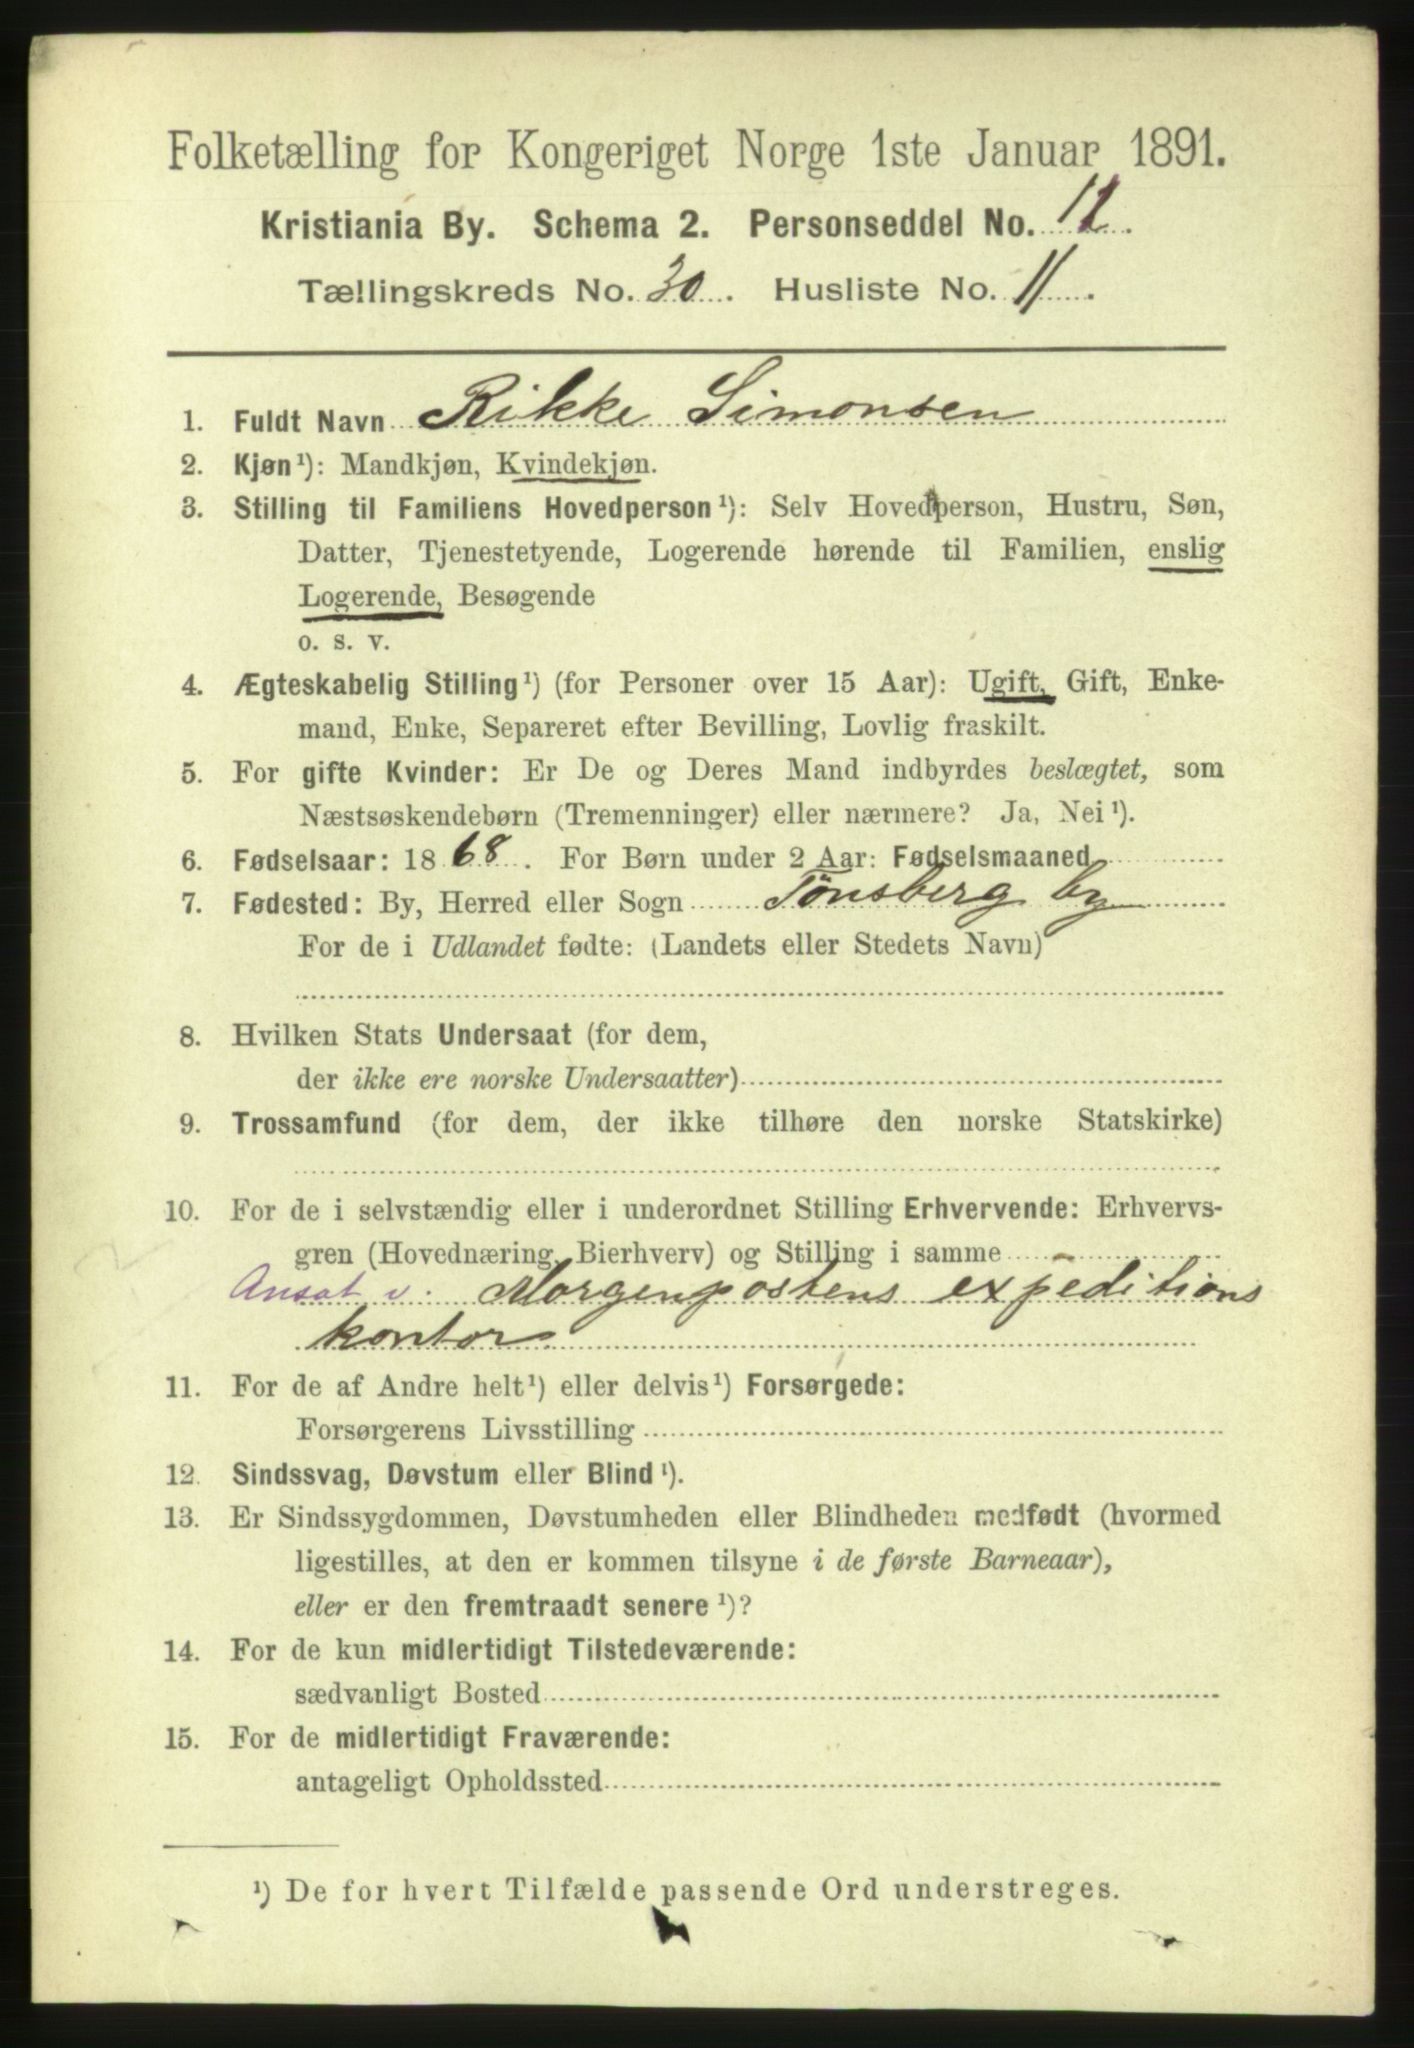 Folketælling for Kongeriget Norge 1ste Januar 1891.
Kristiania By. Schema 2. Personseddel No. 12.
Tællingskreds No. 30. Husliste No. 11.
1. Fuldt Navn Rikke Simonsen
2. Kjøn¹): Mandkjøn, Kvindekjøn.
3. Stilling til Familiens Hovedperson¹): Selv Hovedperson, Hustru, Søn,
Datter, Tjenestetyende, Logerende hørende til Familien, enslig
Logerende, Besøgende
o. s. v.
4. Ægteskabelig Stilling¹) (for Personer over 15 Aar): Ugift, Gift, Enke-
mand, Enke, Separeret efter Bevilling, Lovlig fraskilt.
5. For gifte Kvinder: Er De og Deres Mand indbyrdes beslægtet, som
Næstsøskendebørn (Tremenninger) eller nærmere? Ja, Nei¹).
6. Fødselsaar: 1868. For Børn under 2 Aar: Fødselsmaaned
7. Fødested: By, Herred eller Sogn Tönsberg by
For de i Udlandet fødte: (Landets eller Stedets Navn)
8. Hvilken Stats Undersaat (for dem,
der ikke ere norske Undersaatter)
9. Trossamfund (for dem, der ikke tilhøre den norske Statskirke)
10. For de i selvstændig eller i underordnet Stilling Erhvervende: Erhvervs-
gren (Hovednæring, Bierhverv) og Stilling i samme
Ansat v. Morgenpostens expeditions
kontor
11. For de af Andre helt¹) eller delvis¹) Forsørgede:
Forsørgerens Livsstilling
12. Sindssvag, Døvstum eller Blind¹).
13. Er Sindssygdommen, Døvstumheden eller Blindheden medfødt (hvormed
ligestilles, at den er kommen tilsyne i de første Barneaar),
eller er den fremtraadt senere¹)?
14. For de kun midlertidigt Tilstedeværende:
sædvanligt Bosted
15. For de midlertidigt Fraværende:
antageligt Opholdssted
¹) De for hvert Tilfælde passende Ord understreges.